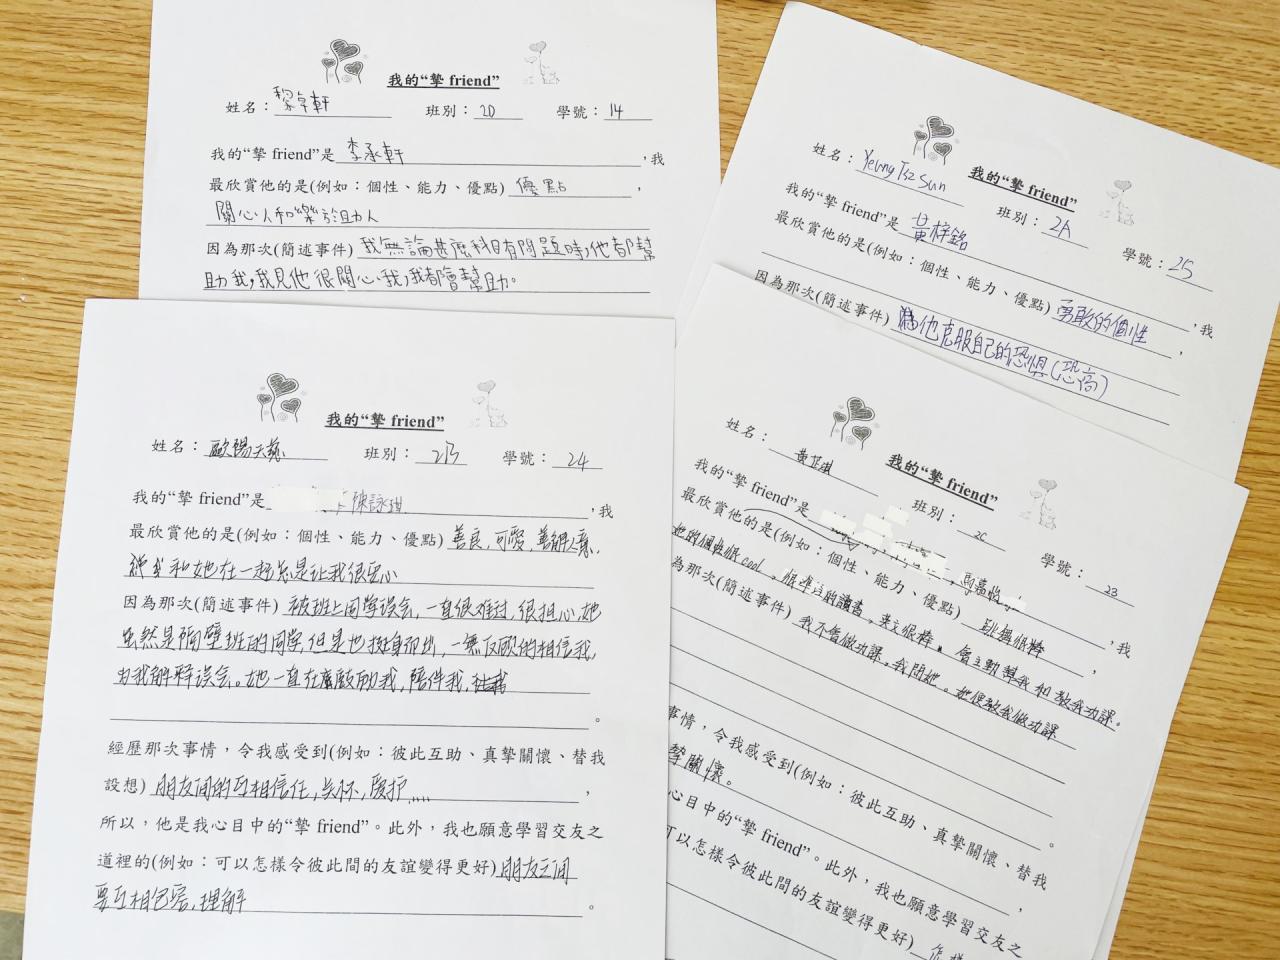 我的“摯 friend”
姓名：黎卓軒 班別：2D 學號：14
我的“摯 friend”是 李承軒 ，我
最欣賞他的是(例如：個性、能力、優點) 優點 ，
關心人和樂於助人
因為那次(簡述事件) 我無論甚麼科目有問題時，他都幫
助我，我見他很關心我，我都會幫助。
我的“摯 friend”
姓名：Yeung Tsz Sun 班別：2A 學號：25
我的“摯 friend”是 黃梓銘 ，我
最欣賞他的是(例如：個性、能力、優點) 勇敢的個性 ，
因為那次(簡述事件) 他克服自己的恐惧(恐高)
我的“摯 friend”
姓名：歐陽天藝 班別：2B 學號：24
我的“摯 friend”是 陳詠琪 ，我
最欣賞他的是(例如：個性、能力、優點) 善良，可愛，善解人意，
和她在一起总是让我很安心
因為那次(簡述事件) 被班上同学误会，一直很难过，很担心，她
虽然是隔壁班的同学，但是也挺身而出，一無反顾的相信我，
为我解释误会。她一直在鼓励我，陪伴我，
。
經歷那次事情，令我感受到(例如：彼此互助、真摯關懷、替我
設想) 朋友间的互相信任，关怀，爱护…… ，
所以，他是我心目中的“摯 friend”。此外，我也願意學習交友之
道裡的(例如：可以怎樣令彼此間的友誼變得更好) 朋友之间
要互相包容，理解 。
我的“摯 friend”
姓名：黃芷淇 班別：2C 學號：23
我的“摯 friend”是 ，我
最欣賞他的是(例如：個性、能力、優點) 跳繩很棒 ，
她的個性很cool，很專注的讀書，英文很棒，會主動幫我和教我功課。
為那次(簡述事件) 我不會做功課，我問她。她便教我做功課
。
事情，令我感受到(例如：彼此互助、真摯關懷、替我
摯關懷。 ，
心目中的“摯 friend”。此外，我也願意學習交友之
可以怎樣令彼此間的友誼變得更好) 怎樣